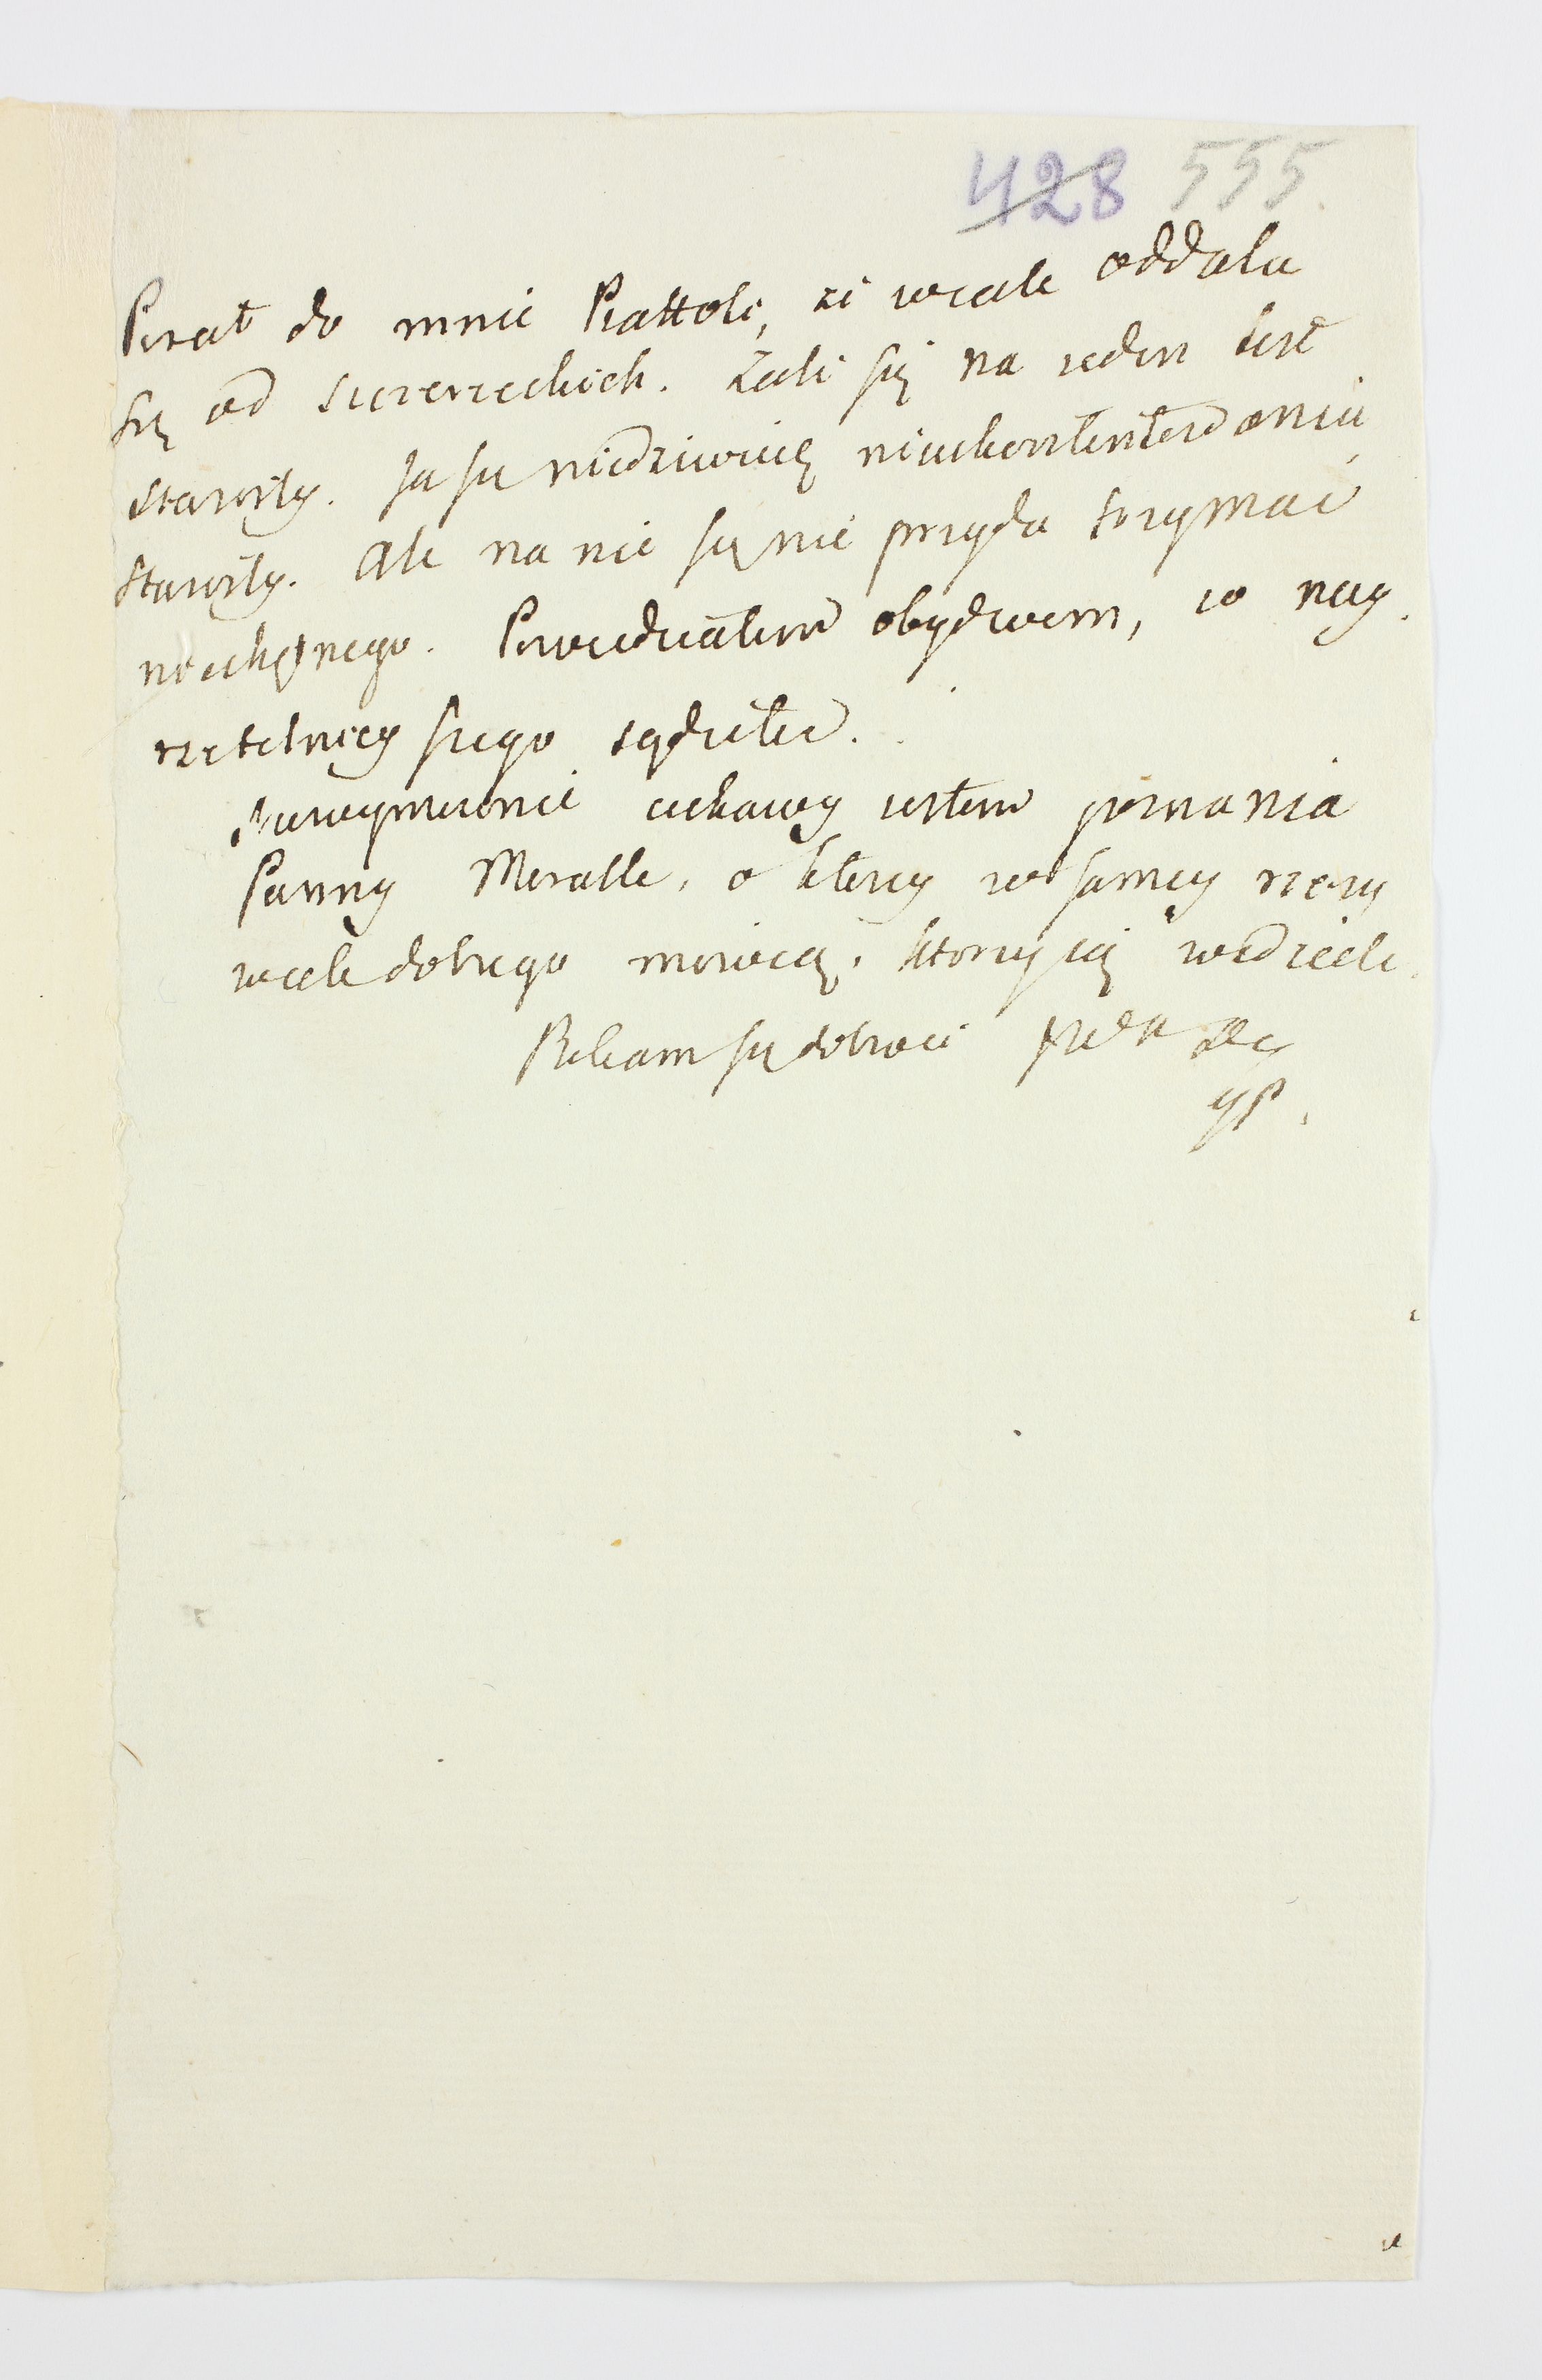 428 555.
Pisał do mnie Piattoli, że wcale oddala
się od Szczerzeckich. Żali się na jeden list
Starosty. Ja się niedziwuię nieukontentowaniu
Starosty. Ale na nic się nie przyda trzymać
niechętnego. Powiedziałem obydwom, co nay
rzetelniey
Niewymownie ciekawy iestem poznania
Panny Moralle, o ktorey w samey rzeczy
wiele dobrego mowią, ktorzy ią widzieli.
Polecam się dobroci